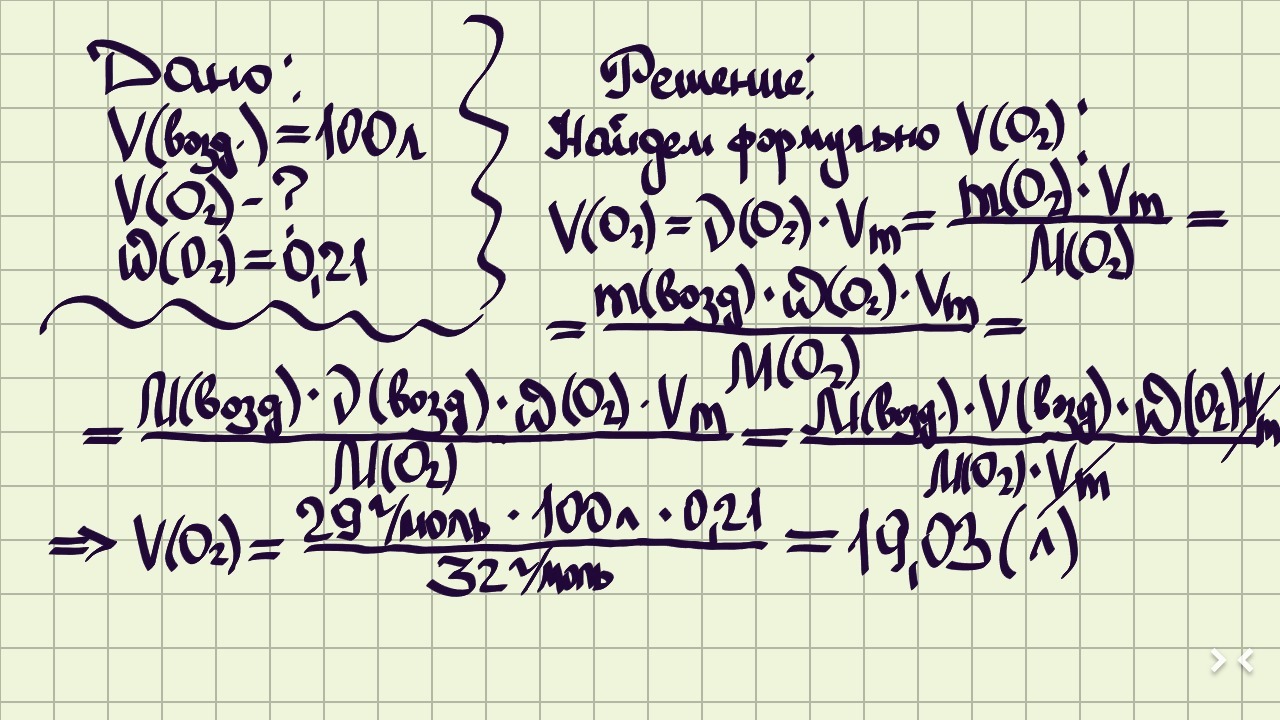 Дано:
V(возд.) = 100л
V(O₂) - ?
ω(O₂) = 0,21
Решение:
Найдем формульно V(O₂):
V(O₂) = ν(O₂) · Vm = m(O₂) · Vm / M(O₂) =
= m(возд) · ω(O₂) · Vm / M(O₂) =
= M(возд) · ν(возд) · ω(O₂) · Vm / M(O₂) = M(возд.) · V(возд) · ω(O₂) Vm / M(O₂) · Vm
⇒ V(O₂) = 29 г/моль · 100л · 0,21 / 32 г/моль = 19,03 (л)